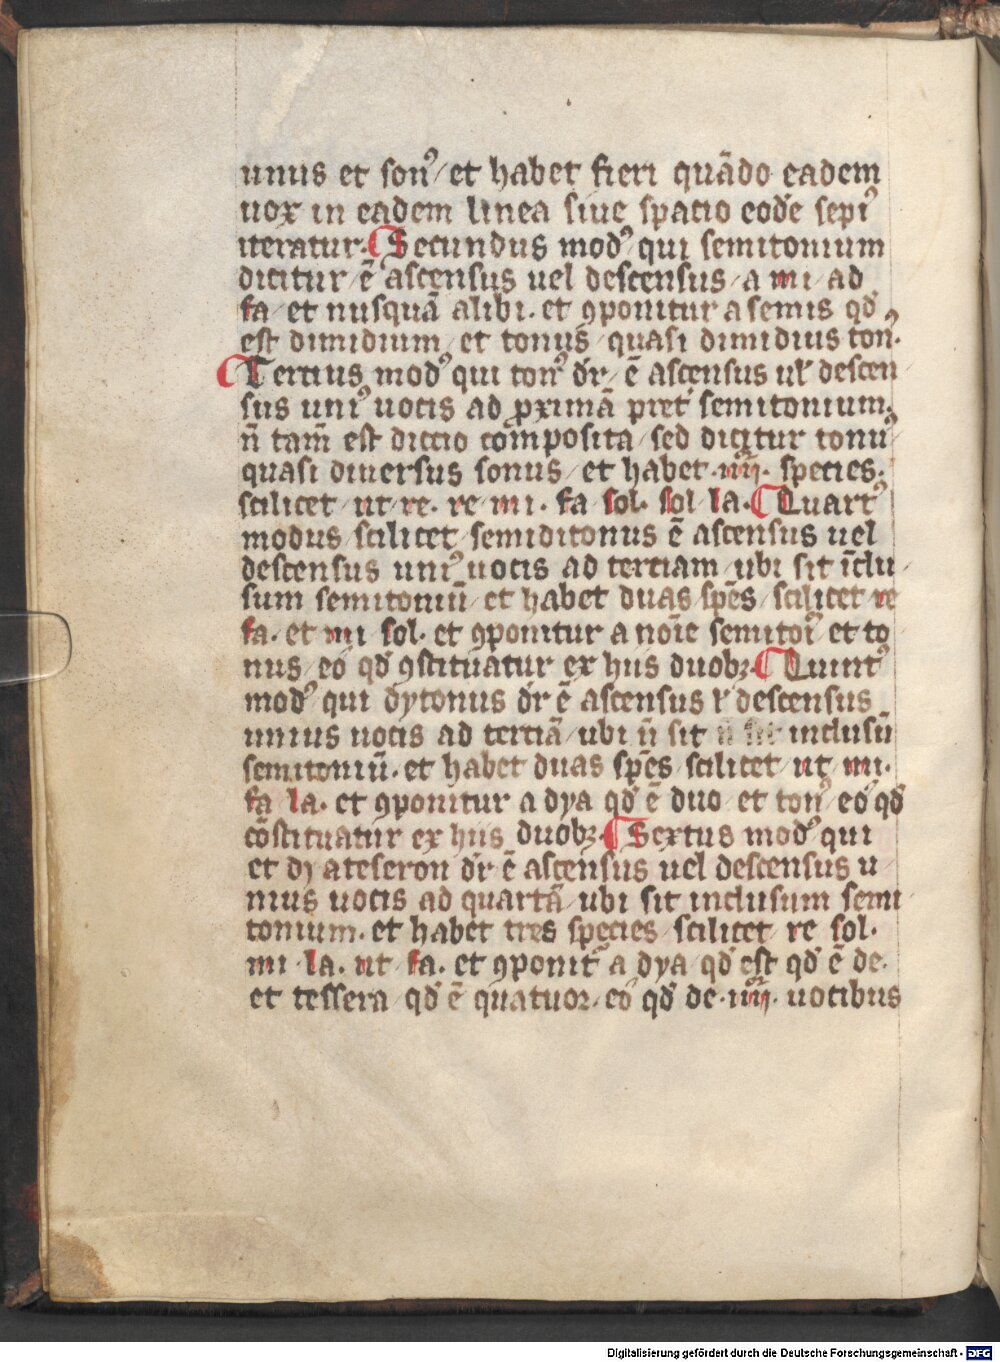 unus et son⁹ / et habet fieri quādo eadem
uox in eadem linea siue spacio eodē sepi⁹
iteratur. ¶ Secundus mod⁹ qui semitonium
dicitur / ē ascensus uel descensus / a mi / ad
fa / et nusquā alibi. et ꝯponitur a semis qd̄
est dimidium / et tonus / quasi dimidius ton⁹.
¶ Tercius mod⁹ qui ton⁹ dr̄ / ē ascensus ul̓ descen
sus uni⁹ uocis ad ꝓximā pret̓ semitonium.
n̄ tam̄ est diccio composita / sed dicitur tonu⁹
quasi diuersus sonus / et habet .iiij. species.
scilicet / ut re. re mi. fa sol. sol la. ¶ Quart⁹
modus / scilicet / semiditonus ē ascensus uel
descensus uni⁹ uocis ad terciam / ubi sit īclu
sum semitoniū / et habet duas / spēs / scilicet re
fa. et mi sol. et ꝯponitur a noīe semitoī et to
nus / eo qd̄ ꝯstituatur ex hiis duobꝫ. ¶ Quint⁹
mod⁹ qui dytonus dr̄ ē ascensus l̓ descensus
unius uocis ad terciā / ubi n̄ sit inclusū
semitoniū. et habet duas spēs / scilicet ut mi.
fa la. et ꝯponitur a dya qd̄ ē duo / et ton⁹ / eo qd̄
cōstituatur ex hiis duobꝫ. ¶ Sextus mod⁹ qui
et dyateseron dr̄ ē ascensus uel descensus u
nius uocis ad quartā / ubi sit inclusum semi
tonium. et habet tres species / scilicet / re sol.
mi la. ut fa. et ꝯponit̄ a dya / qd̄ est qd̄ ē de.
et tessera / qd̄ ē quatuor. eo qd̄ de .iiij. uocibus
Digitalisierung gefördert durch die Deutsche Forschungsgemeinschaft - DFG